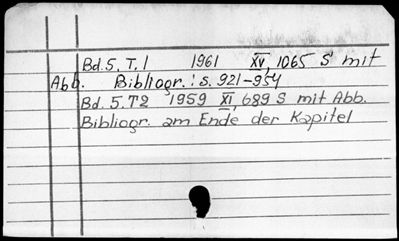 Bd. 5. T. 1 1961 XV, 1065 S mit
Abb. Bibliogr.: S. 921-954
Bd. 5. T2 1959 XI, 689 S mit Abb.
Bibliogr. am Ende der Kapitel